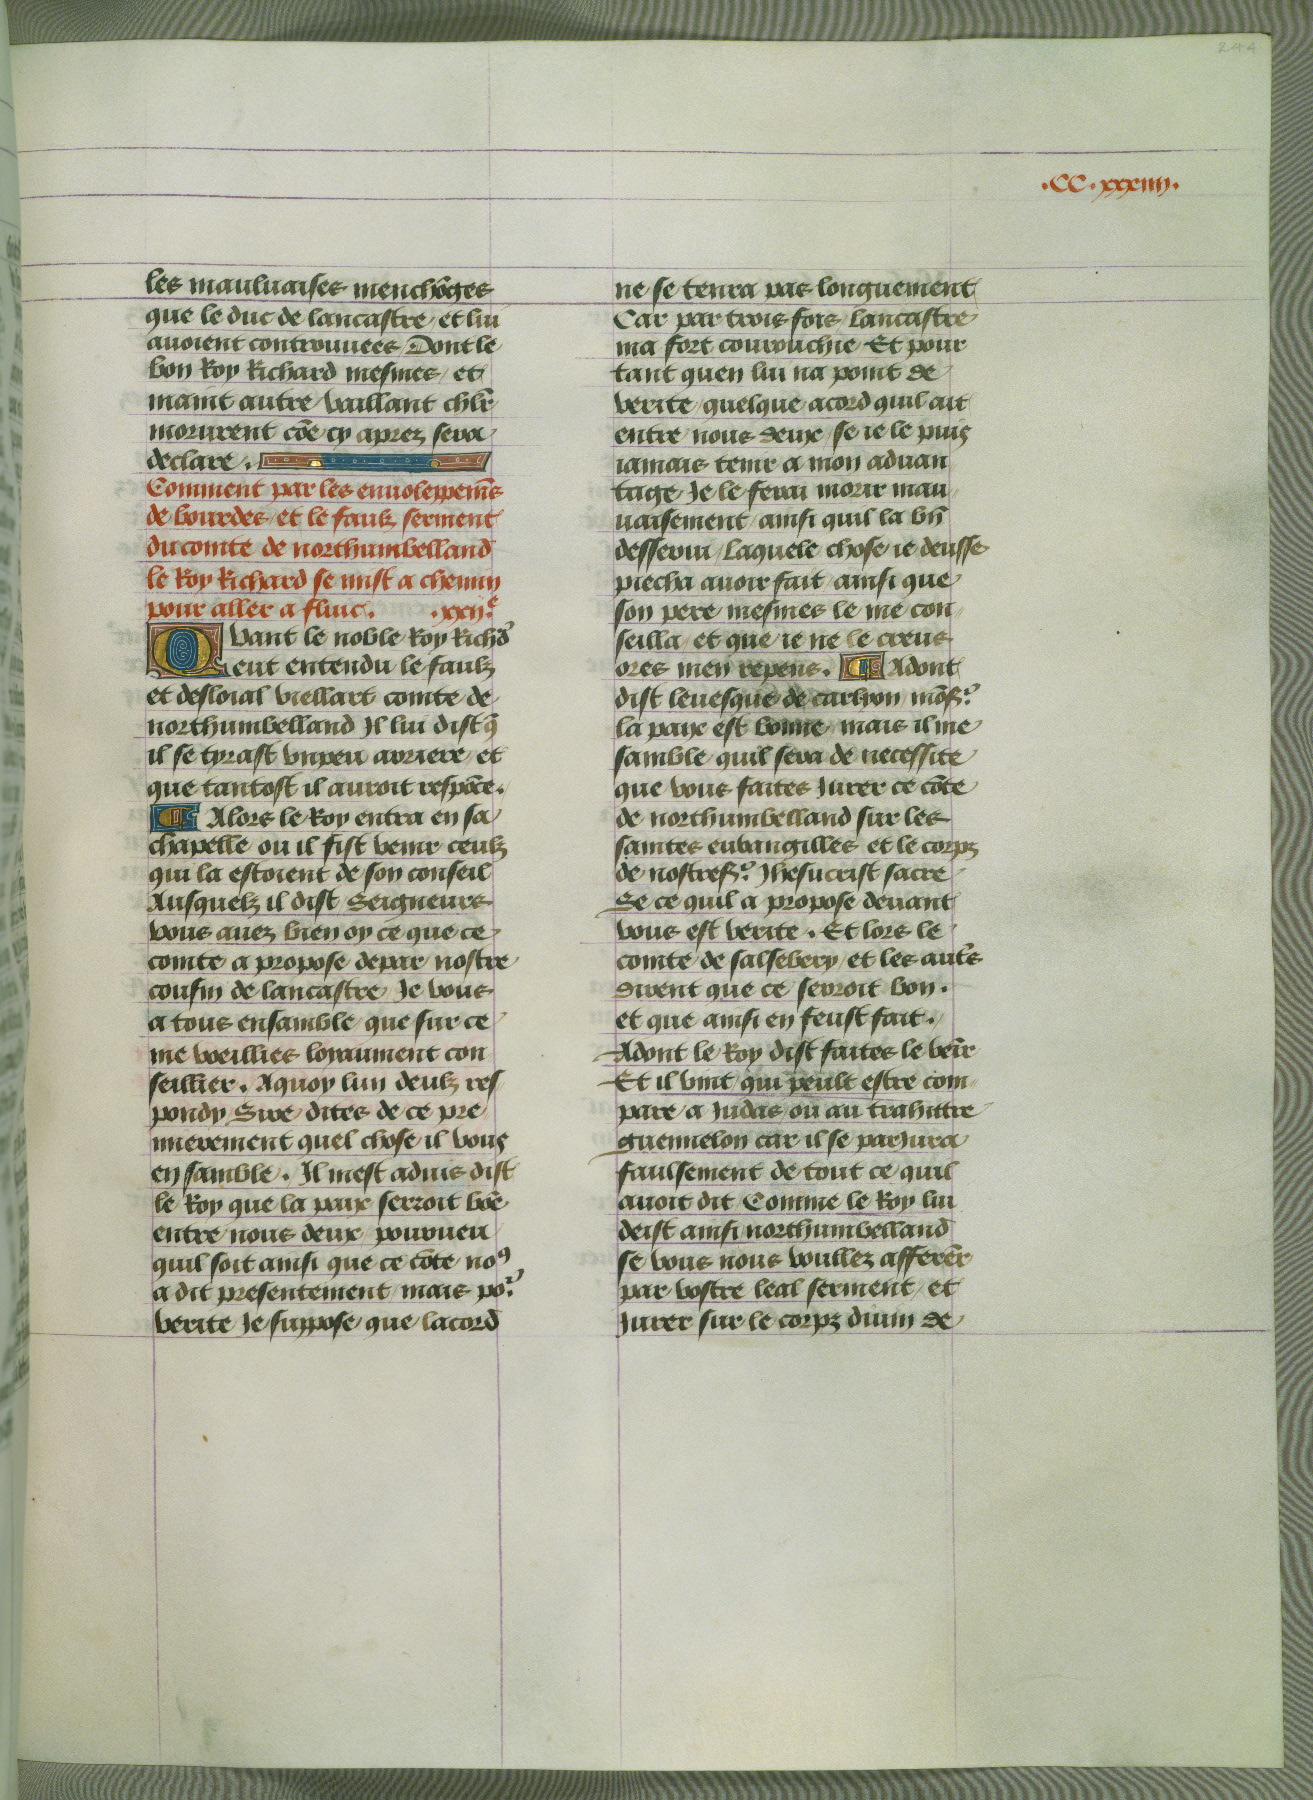 244
.CC.xxxiiii.
les mauluaises menchõges
que le duc de lancastre et lui
auoient controuuees Dont le
bon Roy Richard mesmes et
maint autre vaillant chlr̃
morurent cõe cy aprez sera
declare.
Comment par les enuolepemẽs
de bourdes et le faulz serment
du comte de northumbelland
le Roy Richard se mist a chemin
pour aller a fluic. .xxij.e
Quant le noble Roy Richa᷑d
eut entendu le faulz
et desloial viellart comte de
northumbelland Il lui dist q̃
il se tyrast vnpeu arriere et
que tantost il auroit respõce.
Alors le Roy entra en sa
chapelle ou il fist venir ceulz
qui la estoient de son conseil
Ausquelz il dist Seigneurs
vous auez bien oy ce que ce
comte a propose depar nostre
cousin de lancastre Je vous
a tous ensamble que sur ce
me vœillies loyaument con
seillier. Aquoy lun deulz res
pondy Sire dites de ce pre
mierement quel chose il vous
en samble. Il mest aduis dist
le Roy que la paix serroit bõe
entre nous deux pourueu
quil soit ainsi que ce cõte noꝯ
a dit presentement mais po.ʳ
verite Je suppose que lacord
ne se tenra pas longuement
Car par trois fois lancastre
ma fort courouchie Et pour
tant quen lui na point de
verite quelque acord quil ait
entre nous deux se ie le puis
iamais tenir a mon aduan
tage Je le ferai morir mau
uaisement ainsi quil la bñ
desserui Laquele chose ie deusse
piecha auoir fait ainsi que
son pere mesmes le me con
seilla et que ie ne le creus
ores men repens. Adont
dist leuesque de carlion mõs.ʳ
la paix est bonne mais il me
samble quil sera de necessite
que vous faites Jurer ce cõte
de northumbelland sur les
saintes euvangilles et le corps
de nostres.ʳ Jhesucrist sacre
Se ce quil a propose deuant
vous est verite. Et lors le
comte de salsebery et les autr̃s
dirent que ce serroit bon.
et que ainsi en feust fait.
Adont le Roy dist faites le veñir
Et il vint qui peult estre com
pare a Judas ou au trahittre
guennelon car il se parjura
faulsement de tout ce quil
auoit dit Comme le Roy lui
deist ainsi northumbelland
se vous nous voullez affermer
par vostre leal serment et
Jurer sur le corpz diuin de